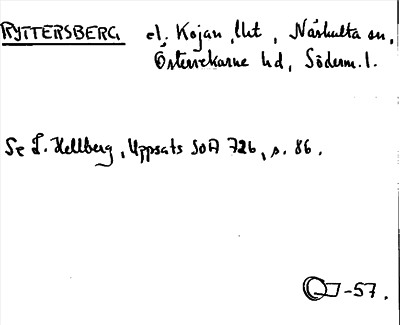 RYTTERSBERG el. Kojan, lht, Näshulta sn,
Österrekarne hd, Söderm. l.
Se L. Hellberg, Uppsats SOA 726, s. 86.
-57.